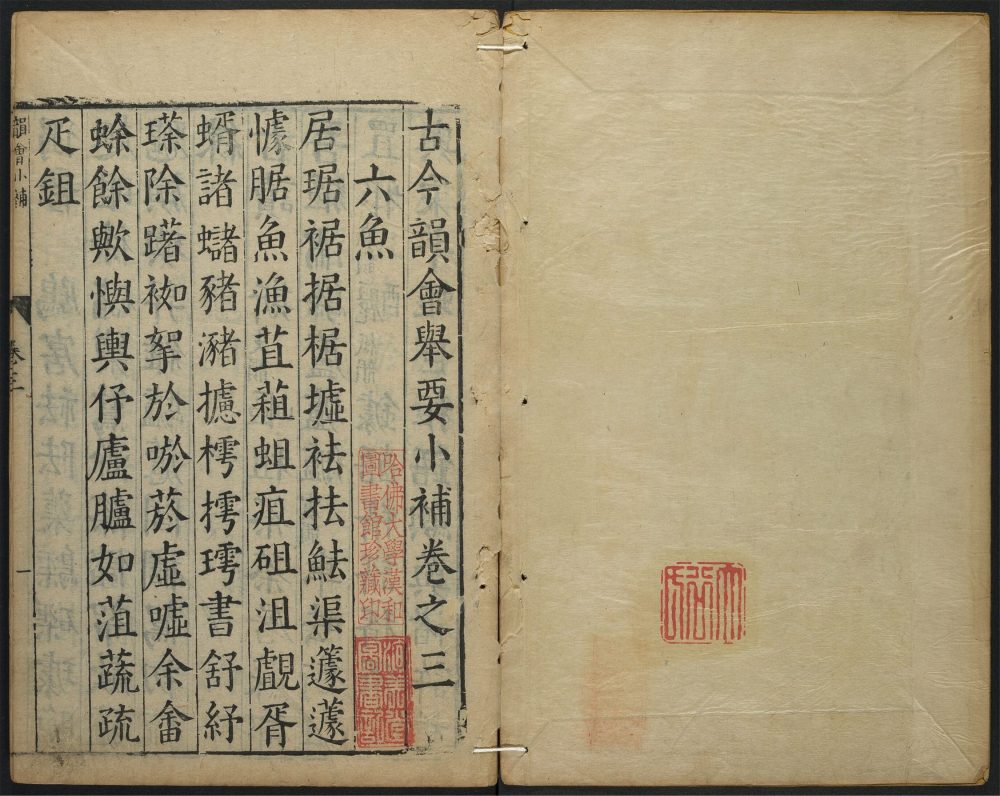 古今韻會舉要小補卷之三
六魚
居琚裾据椐墟袪抾魼渠籧蘧
懅腒魚漁苴蒩蛆疽砠沮覰胥
蝑諸蠩豬瀦攄樗摴㻯書舒紓
瑹除躇袽挐於唹菸虛噓余畬
蜍餘歟懙輿伃廬臚如菹蔬疏
疋鉏
韻會小補
卷三
一
哈佛大學漢和
圖書館珍藏印